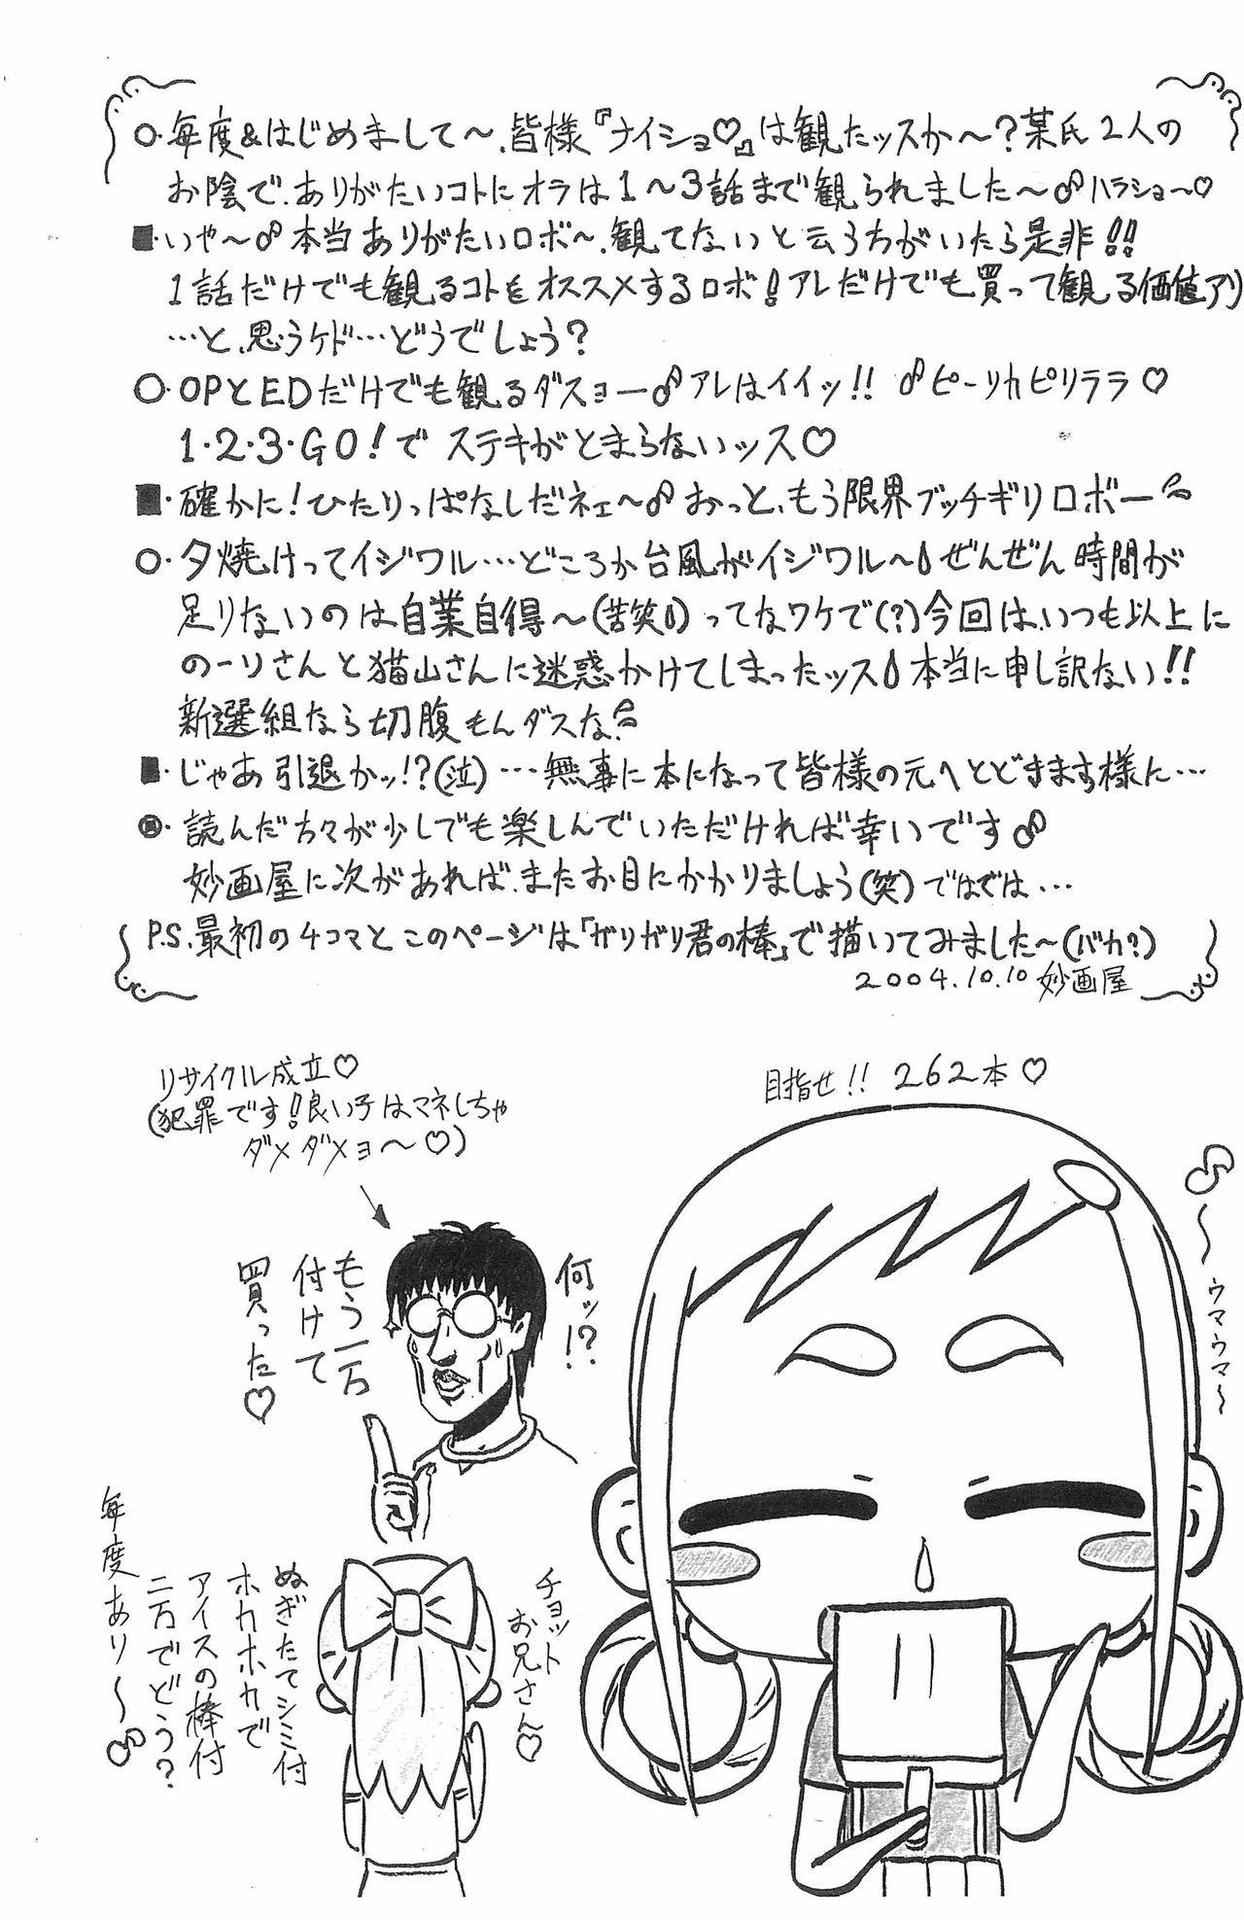 ○・毎度&はじめまして〜、皆様『ナイショ♡』は観たッスか〜？某氏2人の
お陰で、ありがたいコトにオラは1〜3話まで観られました〜♪ハラショ〜♡
■・いや〜♪本当ありがたいロボ〜、観てないと云う方がいたら是非!!
1話だけでも観るコトをオススメするロボ！アレだけでも買って観る価値アリ
…と、思うケド…どうでしょう？
○・OPとEDだけでも観るダスョー♪アレはイイッ!! ♪ピーリカピリララ♡
1・2・3・GO！でステキがとまらないッス♡
■・確かに！ひたりっぱなしだネェ〜♪おっと、もう限界ブッチギリロボー
○・夕焼けってイジワル…どころか台風がイジワル〜 ぜんぜん時間が
足りないのは自業自得〜(苦笑)ってなワケで(?)今回は、いつも以上に
のーりさんと猫山さんに迷惑かけてしまったッス 本当に申し訳ない!!
新選組なら切腹もんダスな
■・じゃあ引退かッ!?(泣)…無事に本になって皆様の元へとどきます様に…
・読んだ方々が少しでも楽しんでいただければ幸いです♪
妙画屋に次があれば、またお目にかかりましょう(笑)ではでは…
P.S.最初の4コマとこのページは「ガリガリ君の棒」で描いてみました〜(バカ?)
2004.10.10 妙画屋
目指せ!! 262本♡
♪〜ウマウマ〜
何ッ!?